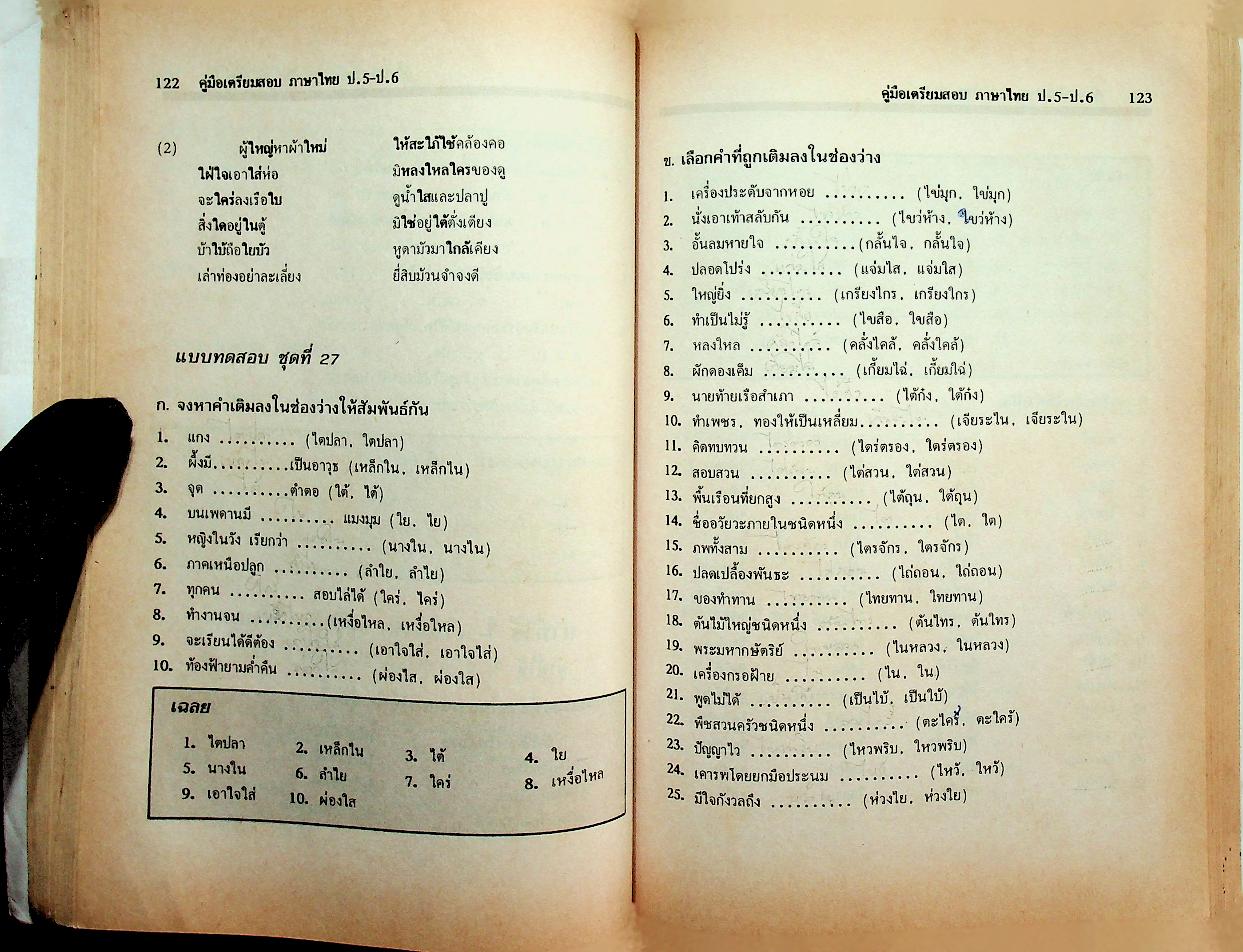 122 คู่มือเตรียมสอบ ภาษาไทย ป.5-ป.6
(2) ผู้ใหญ่หาผ้าใหม่ ให้สะใภ้ใช้คล้องคอ
ใฝ่ใจเอาใส่ห่อ มิหลงใหลใครขอดู
จะใคร่ลงเรือใบ ดูน้ำใสและปลาปู
สิ่งใดอยู่ในตู้ มิใช่อยู่ใต้ตั่งเตียง
บ้าใบ้ถือใยบัว หูตามัวมาใกล้เคียง
เล่าท่องอย่าละเลี่ยง ยี่สิบม้วนจำจงดี
แบบทดสอบ ชุดที่ 27
ก. จงหาคำเติมลงในช่องว่างให้สัมพันธ์กัน
1. แกง .......... (ไตปลา, ใตปลา)
2. ผึ้งมี..........เป็นอาวุธ (เหล็กใน, เหล็กไน)
3. จุด ..........ตำตอ (ใต้, ไต้)
4. บนเพดานมี .......... แมงมุม (ใย, ไย)
5. หญิงในวัง เรียกว่า .......... (นางใน, นางไน)
6. ภาคเหนือปลูก .......... (ลำใย, ลำไย)
7. ทุกคน .......... สอบไล่ได้ (ใคร่, ไคร่)
8. ทำงานจน ..........(เหงื่อไหล, เหงื่อใหล)
9. จะเรียนได้ดีต้อง .......... (เอาใจใส่, เอาใจไส่)
10. ท้องฟ้ายามค่ำคืน .......... (ผ่องไส, ผ่องใส)
เฉลย
1. ไตปลา 2. เหล็กไน 3. ไต้ 4. ใย
5. นางใน 6. ลำไย 7. ใคร่ 8. เหงื่อไหล
9. เอาใจใส่ 10. ผ่องใส
คู่มือเตรียมสอบ ภาษาไทย ป.5-ป.6 123
ข. เลือกคำที่ถูกเติมลงในช่องว่าง
1. เครื่องประดับจากหอย .......... (ไข่มุก, ใข่มุก)
2. นั่งเอาเท้าสลับกัน .......... (ไขว่ห้าง, ใขว่ห้าง)
3. อั้นลมหายใจ ..........(กลั้นไจ, กลั้นใจ)
4. ปลอดโปร่ง .......... (แจ่มไส, แจ่มใส)
5. ใหญ่ยิ่ง .......... (เกรียงไกร, เกรียงใกร)
6. ทำเป็นไม่รู้ .......... (ไขสือ, ใขสือ)
7. หลงใหล .......... (คลั่งไคล้, คลั่งใคล้)
8. ผักดองเค็ม .......... (เกี้ยมไฉ่, เกี้ยมใฉ่)
9. นายท้ายเรือสำเภา .......... (ไต้ก๋ง, ใต้ก๋ง)
10. ทำเพชร, ทองให้เป็นเหลี่ยม.......... (เจียระไน, เจียระใน)
11. คิดทบทวน .......... (ไตร่ตรอง, ใตร่ตรอง)
12. สอบสวน .......... (ไต่สวน, ใต่สวน)
13. พื้นเรือนที่ยกสูง .......... (ไต้ถุน, ใต้ถุน)
14. ชื่ออวัยวะภายในชนิดหนึ่ง .......... (ไต, ใต)
15. ภพทั้งสาม .......... (ไตรจักร, ใตรจักร)
16. ปลดเปลื้องพันธะ .......... (ไถ่ถอน, ใถ่ถอน)
17. ของทำทาน .......... (ไทยทาน, ใทยทาน)
18. ต้นไม้ใหญ่ชนิดหนึ่ง .......... (ต้นไทร, ต้นใทร)
19. พระมหากษัตริย์ .......... (ไนหลวง, ในหลวง)
20. เครื่องกรอฝ้าย .......... (ไน, ใน)
21. พูดไม่ได้ .......... (เป็นไบ้, เป็นใบ้)
22. พืชสวนครัวชนิดหนึ่ง .......... (ตะไคร้, ตะใคร้)
23. ปัญญาไว .......... (ไหวพริบ, ใหวพริบ)
24. เคารพโดยยกมือประนม .......... (ไหว้, ใหว้)
25. มีใจกังวลถึง .......... (ห่วงไย, ห่วงใย)